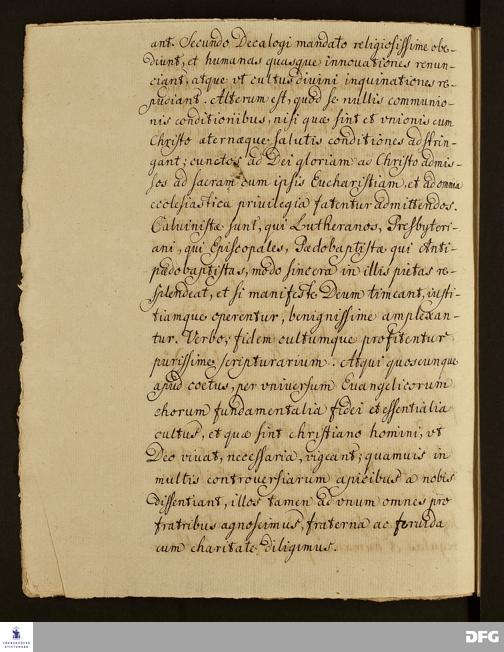 ant. Secundo Decalogi mandato religiosissime obe-
diunt, et humanas quasque innouationes renun-
ciant, atque vt cultus divini inquinationes re-
pudiant. Alterum est, quod se nullis communio-
nis conditionibus, nisi quæ sint et vnionis cum
Christo æternæque salutis conditiones adstrin-
gant; cunctos ad Dei gloriam a Christo admis-
sos ad sacram cum ipsis Eucharistiam, et ad omnia
ecclesiastica priuilegia fatentur admittendos.
Caluinistæ sunt, qui Lutheranos, Presbyteri-
ani, qui Episcopales, Pædobaptistæ qui Anti-
pædobaptistas, modo sincera in illis pietas re-
splendeat, et si manifesto Deum timeant, iusti-
tiamque operentur, benignissime amplexan-
tur. Verbo, fidem cultumque profitentur
purissime scripturarium. Atqui quoscunque
apud coetus, per vniuersum Euangelicorum
chorum fundamentalia fidei et essentialia
cultus, et quæ sint christiano homini, vt
Deo viuat, necessaria, vigeant; quamuis in
multis controuersiarum apicibus a nobis
dissentiant, illos tamen ad vnum omnes pro
fratribus agnoscimus, fraterna ac feruida
cum charitate diligimus.
FRANCKESCHE
STIFTUNGEN
DFG